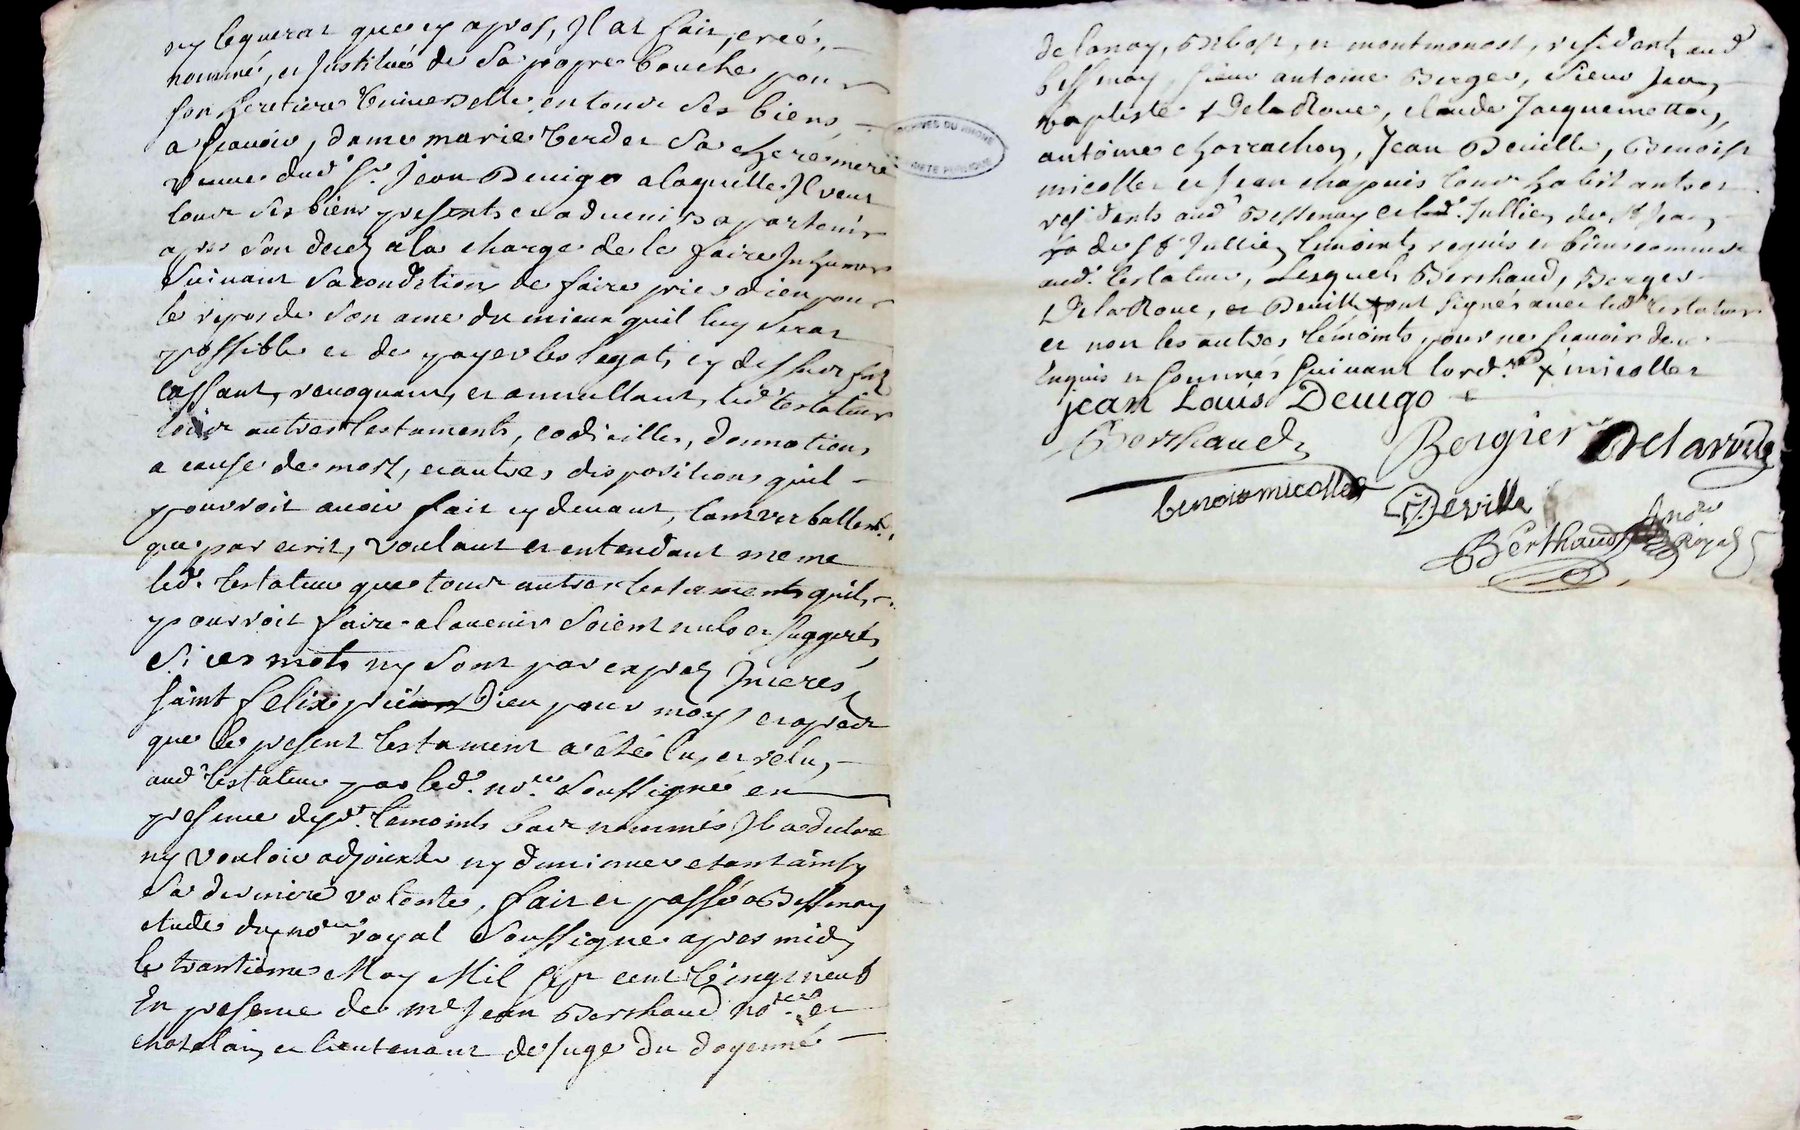 ny leguerat que cy apres, Il at fait, créé,
nommé, et Institué de sa propre bouche pour
son heretiere Universelle en tout ses biens,
a scavoir, dame marie Verdet sa chere mere
veuve dud. Sr. Jean Deuigo a laquelle Il veut
tout ses biens presents et advenir apartenir
apres son decez a la charge de le faire Inhumer
suivant sa condition de faire prier dieu pour
le repos de son ame du mieux quil luy serat
possible et de payer les legats cy dessus
cassant, revoquant, et annullant, led. testateur
tout autres testaments, codicilles, donnations
a cause de mort, et autres dispositions quil
pourroit avoir fait cy devant, tant verballemt.
que par ecrit, voulant et entendant meme
led. testateur que tout autres testaments quil
pourroit faire a lavenir soient nuls et suggerés
si ces mots ny sont par exprez Inserés
saint felix priéz Dieu pour moy, et apres
que le present testament a été lu, et relu,
aud. testateur par led. nore. soussigné en
presence des témoints bas nommés Il a declare
ny vouloir adjouter ny diminuer etant ainsy
sa derniere volonté, fait et passé a Bessenay
etude du nore. royal soussigne apres midy
le trantieme May Mil sept cent Vingt neuf
En presence de me Jean Berthaud nore. et
chatelain, et lieutenant de Juge du doyenné
de sanoy, Bibost, et montmonost, residant, aud.
bessenay, sieur antoine Berger, sieur Jean
baptiste Delaroue, claude Jacquemetton,
antoine charrachon, Jean Deville, Benoist
micollet et Jean chapuis tout habitants et
residents aud. Bessenay et led. Jullien
de St. Jullien temoints requis et bien connus
aud. testateur, lesquels Berthaud, Berger
Delaroue, et Deville ont signés avec led. testateur
et non les autres témoints pour ne scavoir de ce
Enquis et sommés suivant lord.ce x micollet
jean Louis Deuigo
Berthaud
Bergier
Delaroue
benois micollet
Deville
Berthaud
nore
Royal
ARCHIVES DU RHONE